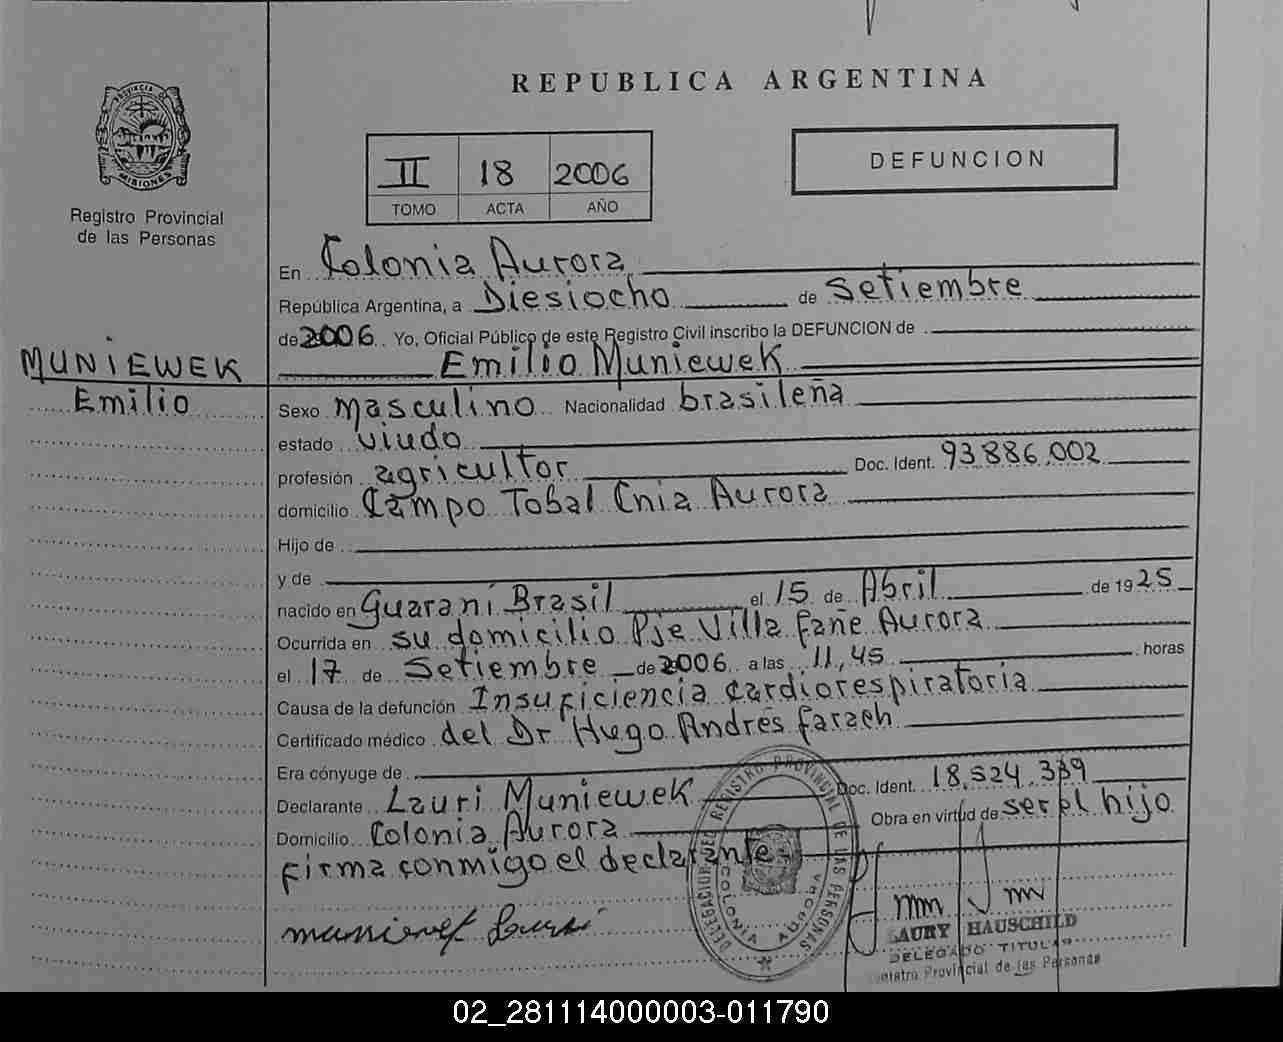 REPUBLICA ARGENTINA
PROVINCIA DE MISIONES
Registro Provincial
de las Personas
II 18 2006
TOMO ACTA AÑO
DEFUNCION
En Colonia Aurora
República Argentina, a Diesiocho de Setiembre
de 2006 Yo, Oficial Público de este Registro Civil inscribo la DEFUNCION de
MUNIEWEK
Emilio Muniewek
Emilio
Sexo masculino Nacionalidad brasileña
estado viudo
profesión agricultor Doc. Ident. 93.886.002
domicilio Campo Tobal Cnia Aurora
Hijo de
y de
nacido en Guaraní Brasil el 15 de Abril de 1925
Ocurrida en su domicilio Pje Villa fañe Aurora
el 17 de Setiembre de 2006 a las 11,45 horas
Causa de la defunción Insuficiencia cardiorespiratoria
Certificado médico del Dr Hugo Andrés farach
Era cónyuge de
Declarante Lauri Muniewek Doc. Ident. 18.524.339
Domicilio Colonia Aurora Obra en virtud de ser el hijo
firma conmigo el declarante
DELEGACION DEL REGISTRO PROVINCIAL DE LAS PERSONAS
COLONIA AURORA
LAURY HAUSCHILD
DELEGADO TITULAR
Registro Provincial de las Personas
02_281114000003-011790